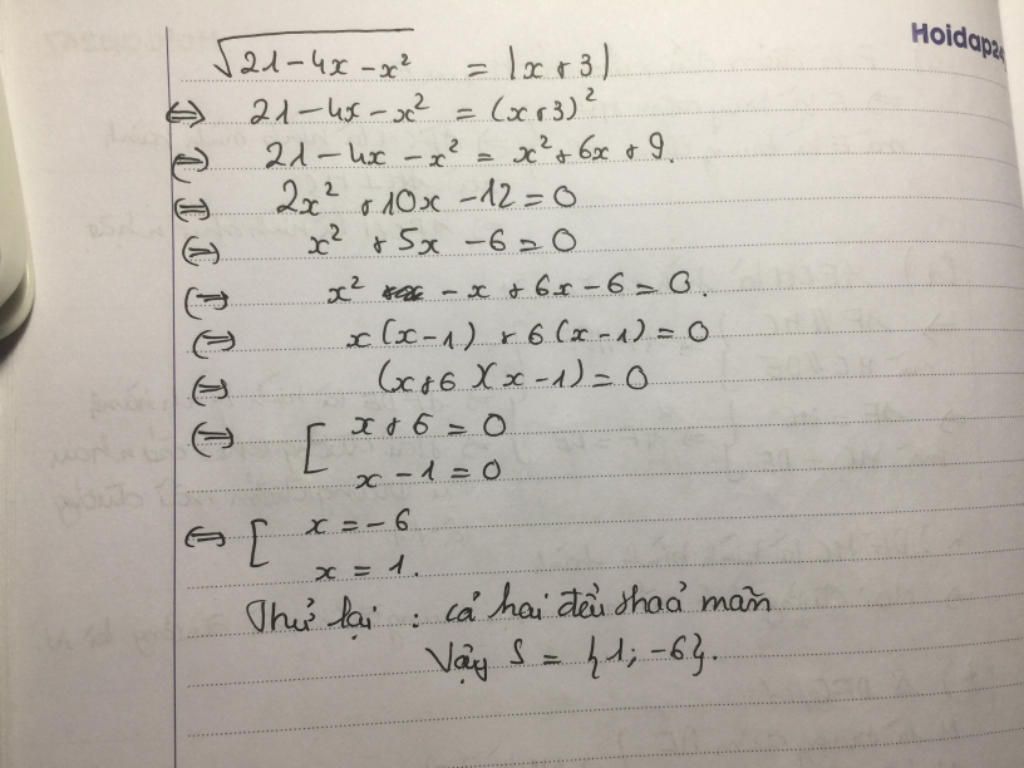 Hoidap24
√21-4x-x² = |x+3|
⇔ 21-4x-x² = (x+3)²
⇔ 21-4x-x² = x²+6x+9.
⇔ 2x²+10x-12=0
⇔ x²+5x-6=0
⇔ x² -x+6x-6=0.
⇔ x(x-1)+6(x-1)=0
⇔ (x+6)(x-1)=0
⇔ [ x+6=0
x-1=0
⇔ [ x=-6
x=1.
Thử lại : cả hai đều thoả mãn
Vậy S = {1; -6}.